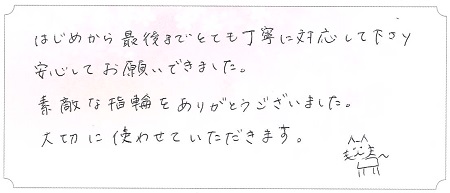 はじめから最後までとても丁寧に対応して下さり
安心してお願いできました。
素敵な指輪をありがとうございました。
大切に使わせていただきます。